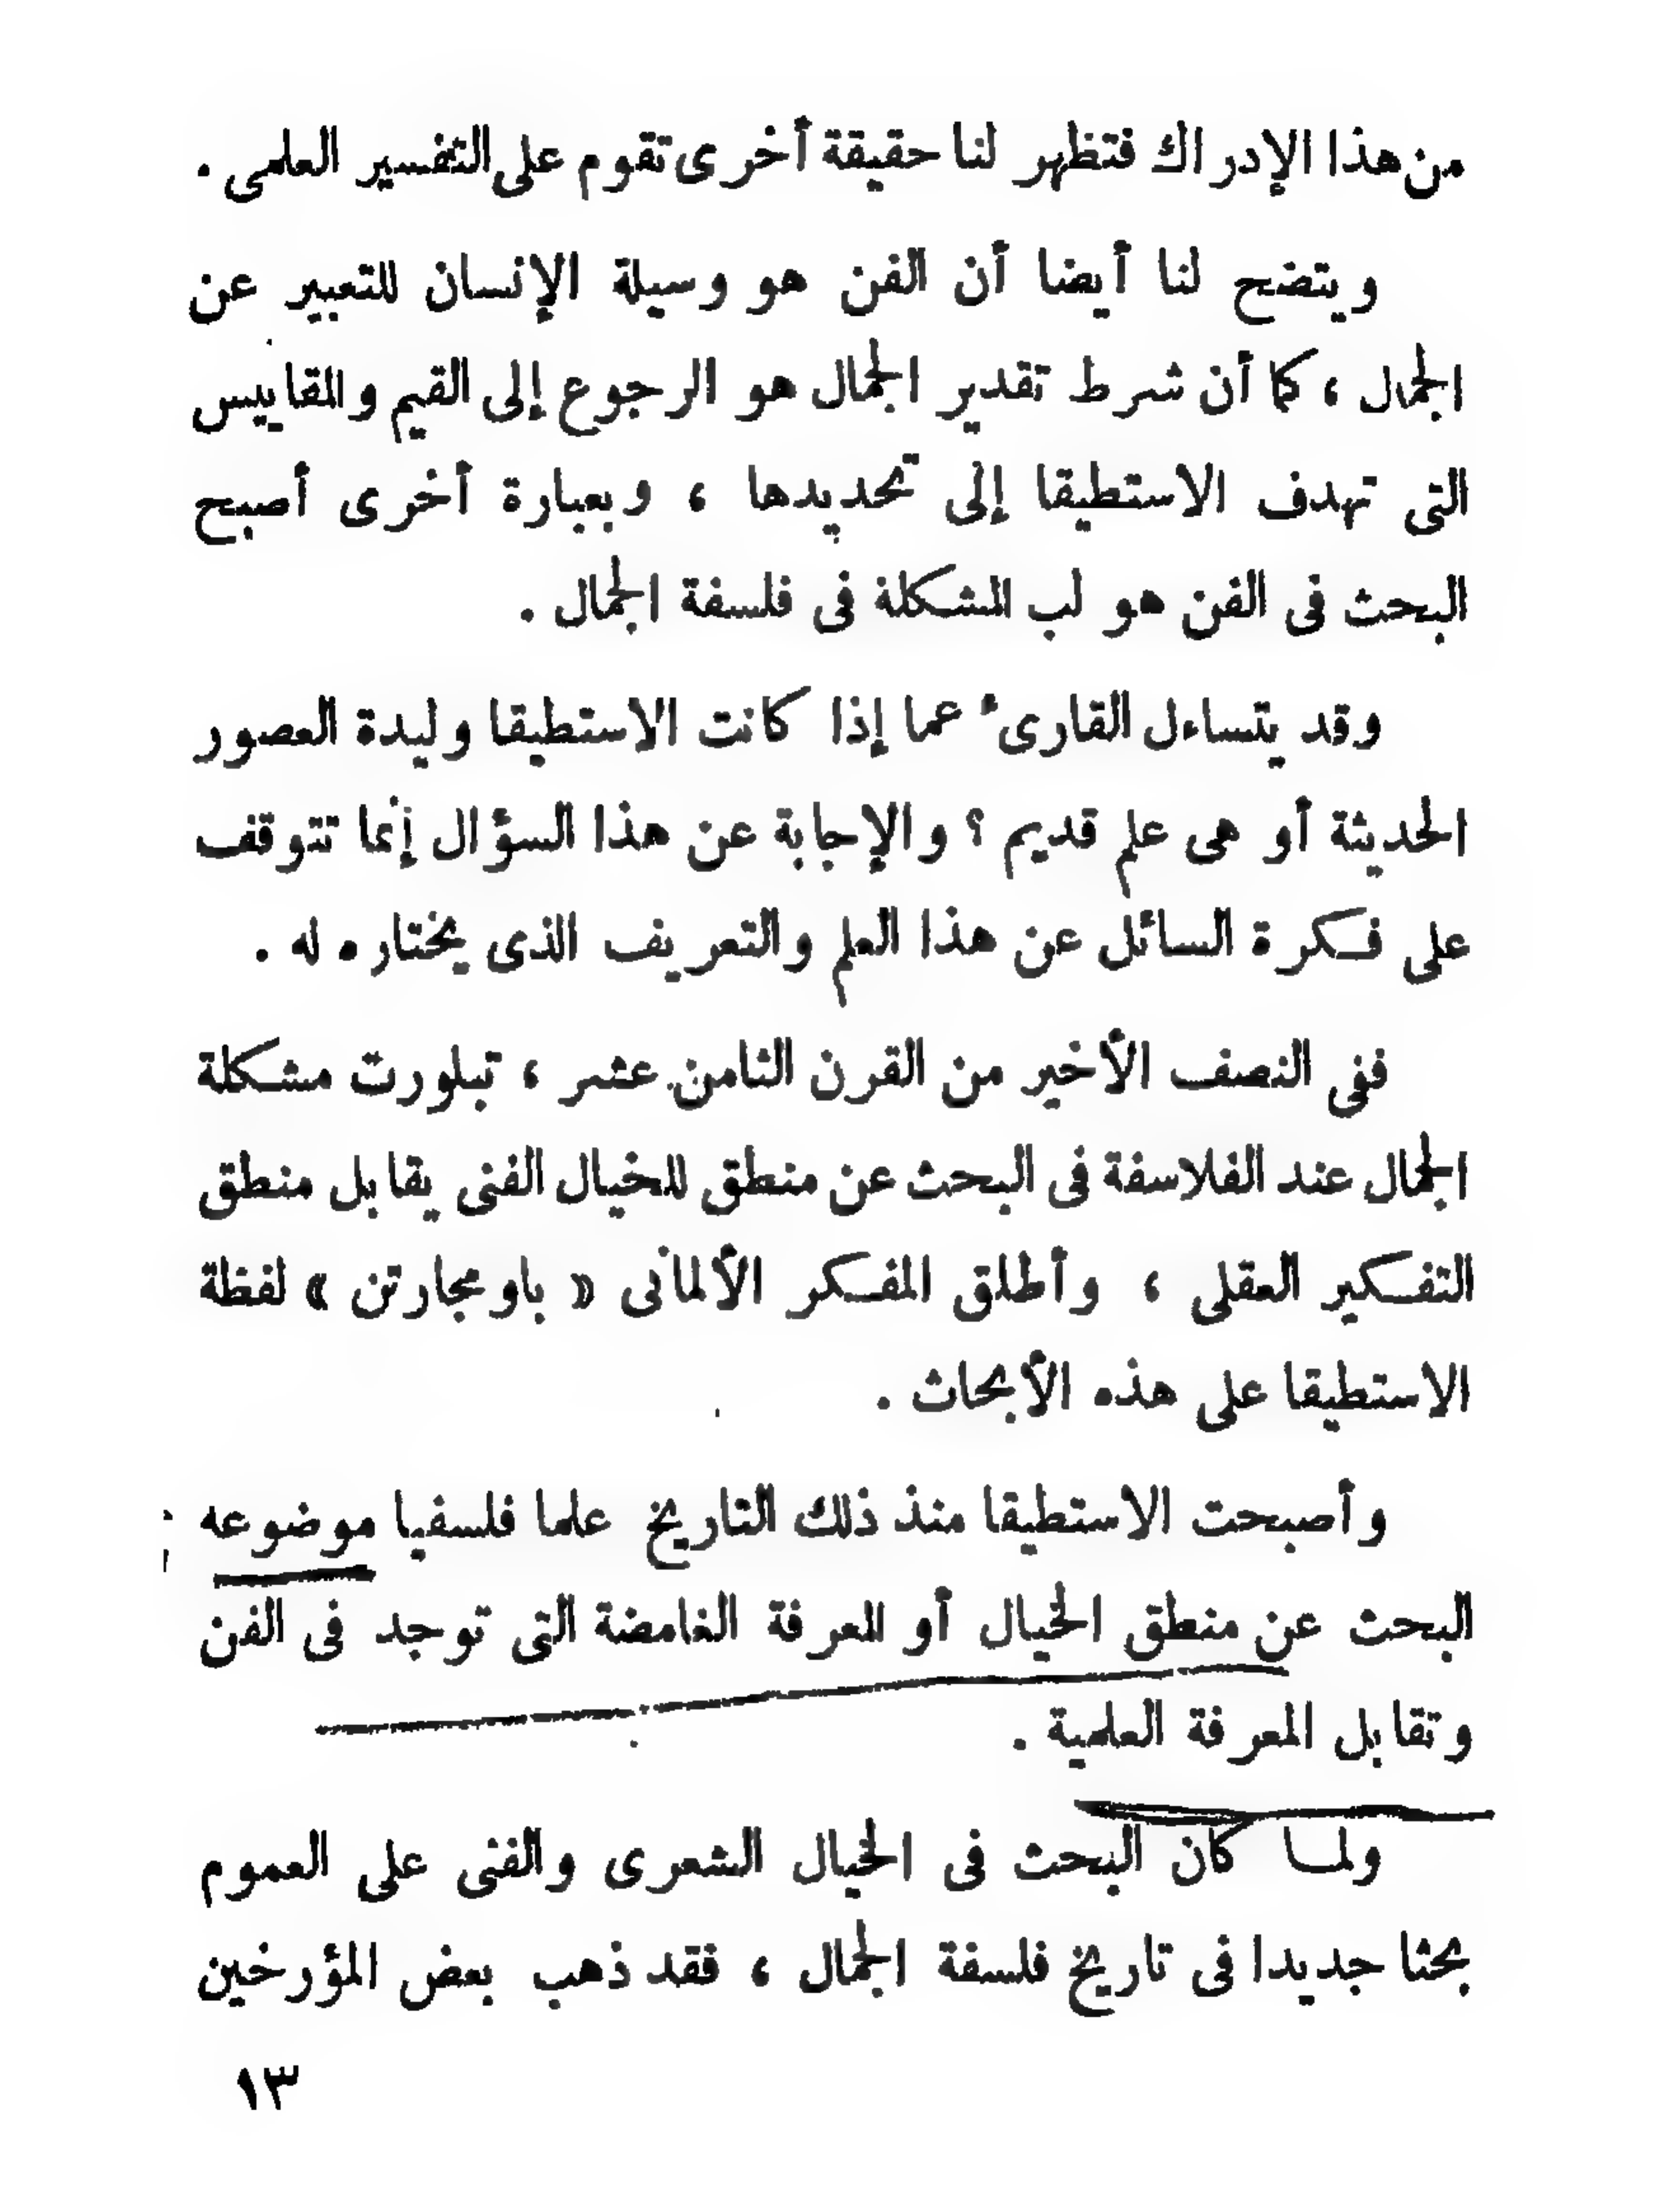 من هذا الإدراك فتظهر لنا حقيقة أخرى تقوم على التفسير العلمى .
ويتضح لنا أيضا أن الفن هو وسيلة الإنسان للتعبير عن
الجمال ، كما أن شرط تقدير الجمال هو الرجوع إلى القيم والمقاييس
التى تهدف الاستطيقا إلى تحديدها ، وبعبارة أخرى أصبح
البحث فى الفن هو لب المشكلة فى فلسفة الجمال .
وقد يتساءل القارىء عما إذا كانت الاستطيقا وليدة العصور
الحديثة أو هى علم قديم ؟ والإجابة عن هذا السؤال إنما تتوقف
على فكرة السائل عن هذا العلم والتعريف الذى يختاره له .
ففى النصف الأخير من القرن الثامن عشر ، تبلورت مشكلة
الجمال عند الفلاسفة فى البحث عن منطق للخيال الفنى يقابل منطق
التفكير العقلى ، وأطلق المفكر الألمانى « باومجارتن » لفظة
الاستطيقا على هذه الأبحاث .
وأصبحت الاستطيقا منذ ذلك التاريخ علما فلسفيا موضوعه
البحث عن منطق الخيال أو المعرفة الغامضة التى توجد فى الفن
وتقابل المعرفة العلمية .
ولما كان البحث فى الخيال الشعرى والفنى على العموم
بحثا جديدا فى تاريخ فلسفة الجمال ، فقد ذهب بعض المؤرخين
١٣